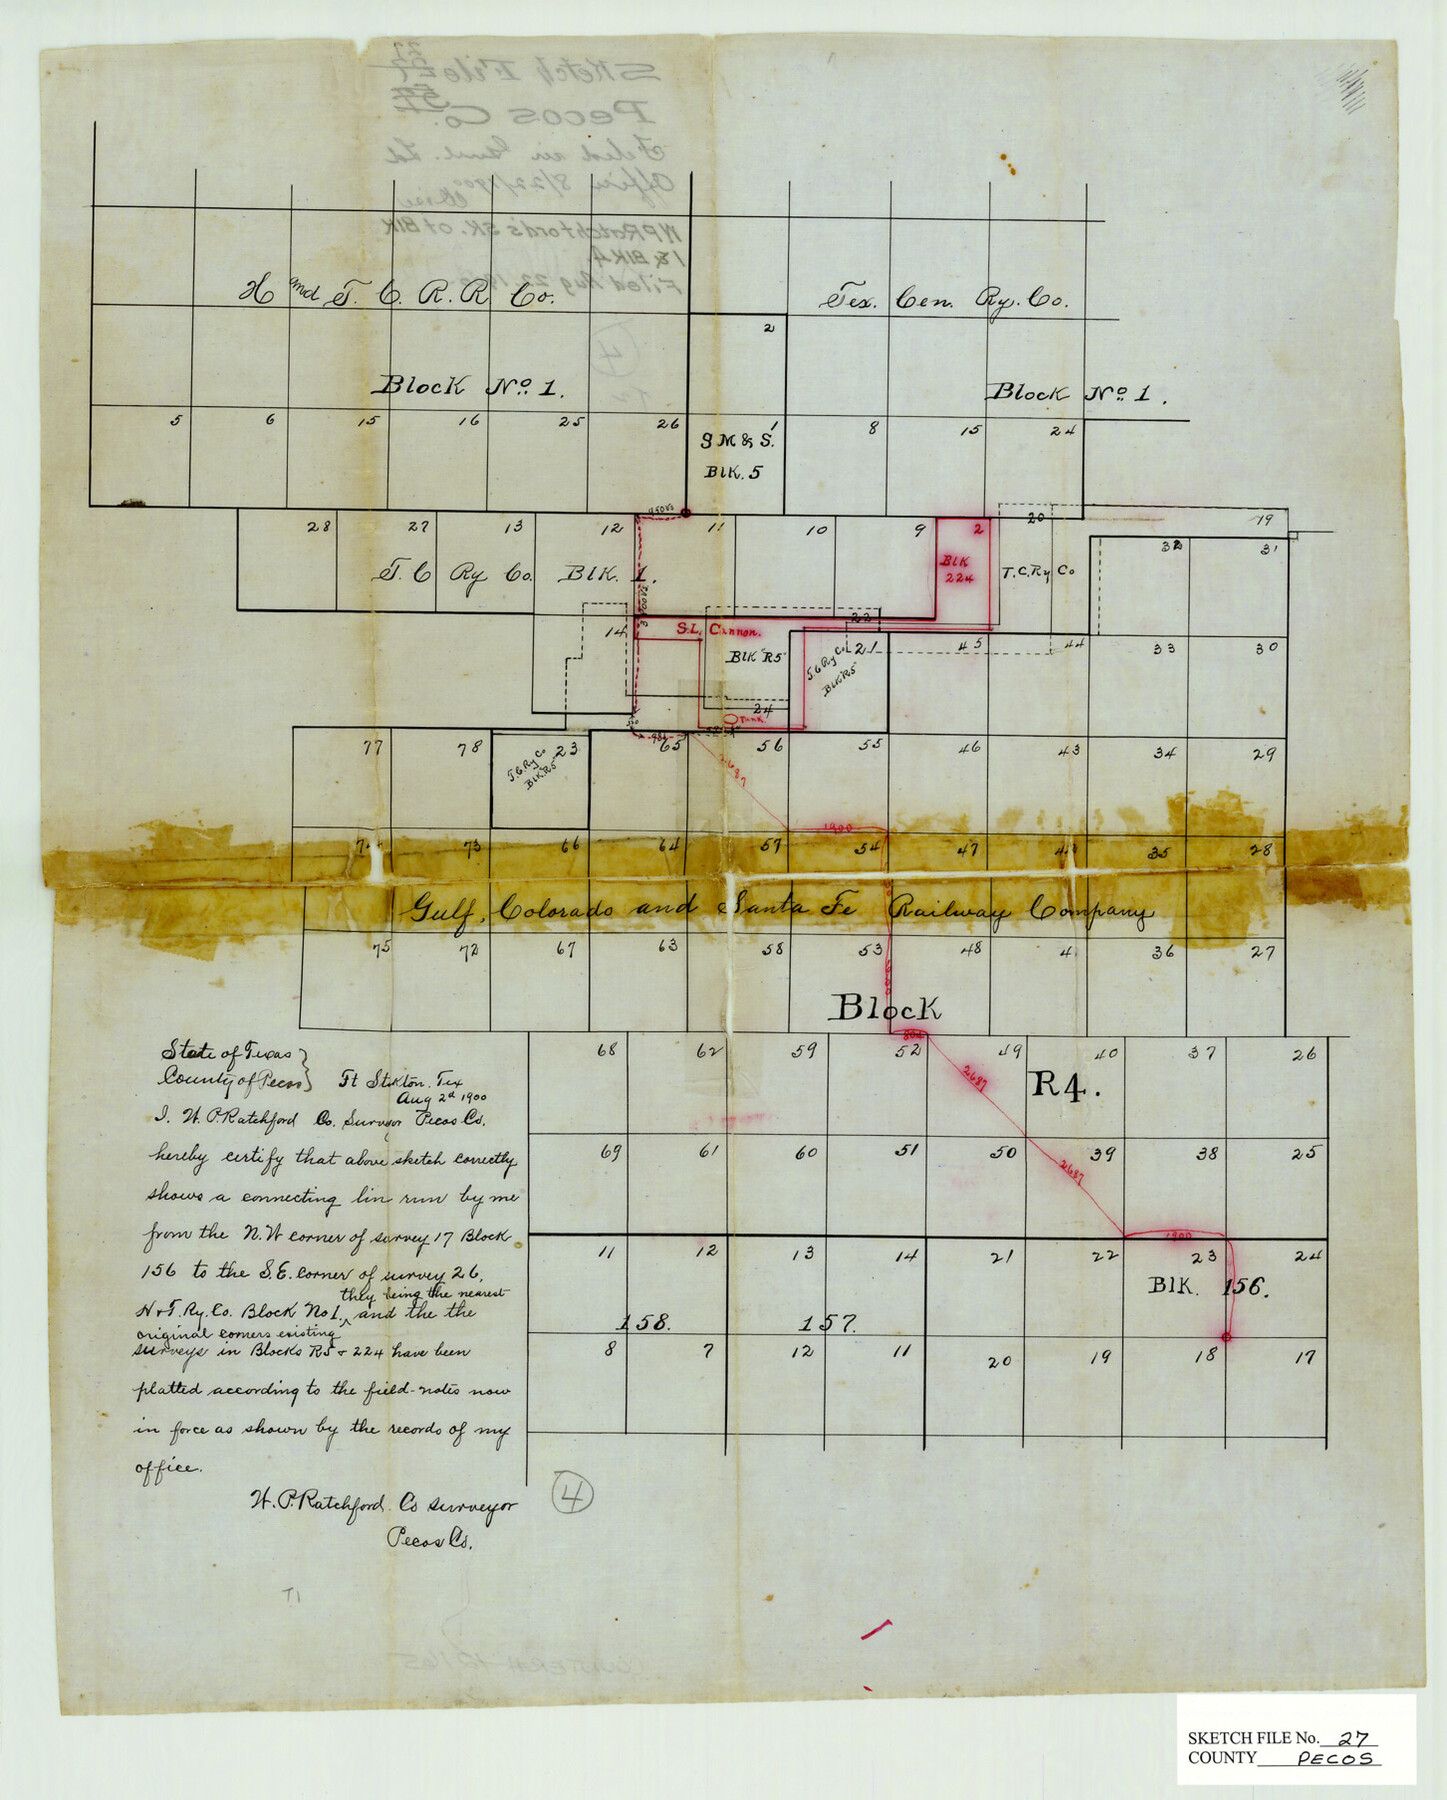 H and T. C. R. R. Co.
Tex. Cen. Ry. Co.
2
Block No. 1.
Block No. 1.
5 6 15 16 25 26 1 8 15 24
S M & S.
Blk. 5
950 vs
28 27 13 12 11 10 9 2 20 19
32 31
T. C Ry Co. Blk. 1.
Blk
224
T.C.Ry Co
14 S.L. Cannon. 22
Blk "R5"
T.C Ry Co. 21
Blk "R5"
45 44 33 30
24
Tank.
77 78 23 65 56 55 46 43 34 29
T.C.Ry Co
Blk "R5"
2687
1900
73 66 64 57 54 47 35 28
Gulf, Colorado and Santa Fe Railway Company
75 72 67 63 58 53 48 4 36 27
Block
R4.
804
68 62 59 52 49 40 37 26
2687
69 61 60 51 50 39 38 25
2687
1900
11 12 13 14 21 22 23 24
Blk. 156.
158. 157.
8 7 12 11 20 19 18 17
State of Texas
County of Pecos
Ft Stokton. Tex
Aug 2d 1900
I. W. P. Ratchford Co. Surveyor Pecos Co.
hereby certify that above sketch correctly
shows a connecting lin run by me
from the N.W corner of survey 17 Block
156 to the S.E. corner of survey 26,
they being the nearest
H & T. Ry. Co. Block No 1. ^ and the the
original corners existing
surveys in Blocks R5 & 224 have been
platted according to the field-notes now
in force as shown by the records of my
office.
W. P. Ratchford Co surveyor
Pecos Co.
4
SKETCH FILE No. 27
COUNTY PECOS